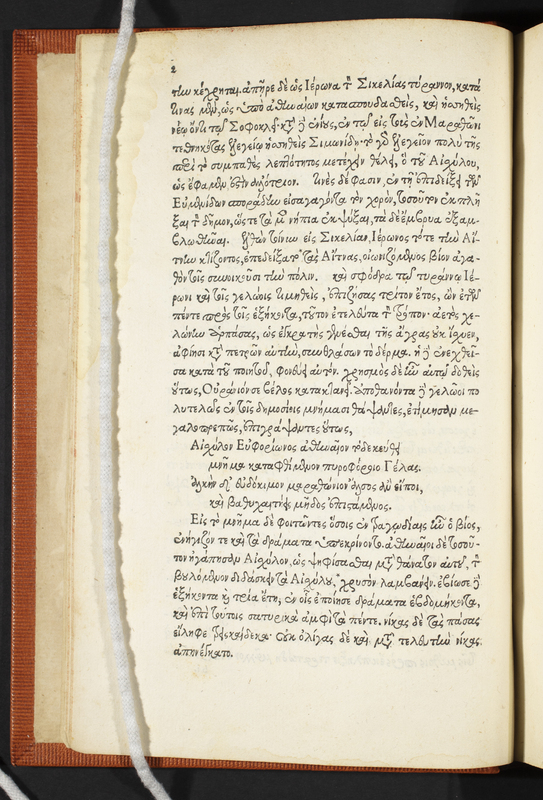 2
τὴν κέχρηται. ἀπῆρε δὲ ὡς Ἱέρωνα τὸν Σικελίας τύραννον, κατά
τινας μὲν, ὡς ὑπὸ ἀθηναίων κατασπουδασθεὶς, καὶ ἡσσηθεὶς
νέῳ ὄντι τῷ Σοφοκλεῖ· κατὰ δὲ ἐνίους, ἐν τῷ εἰς τοὺς ἐν Μαραθῶνι
τεθνηκότας ἐλεγείῳ ἡσσηθεὶς Σιμωνίδῃ· τὸ γὰρ ἐλεγεῖον πολὺ τῆς
περὶ τὸ συμπαθὲς λεπτότητος μετέχειν θέλει, ὃ τοῦ Αἰσχύλου,
ὡς ἔφαμεν ἐστὶν ἀλλότριον. τινὲς δέ φασιν, ἐν τῇ ἐπιδείξει τῶν
Εὐμενίδων σποράδην εἰσαγαγόντα τὸν χορὸν, τοσοῦτον ἐκπλῆ
ξαι τὸν δῆμον, ὥστε τὰ μὲν νήπια ἐκψῦξαι, τὰ δὲ ἔμβρυα ἐξαμ-
βλωθῆναι. ἐλθὼν τοίνυν εἰς Σικελίαν, Ἱέρωνος τότε τὴν Αἴ-
τνην κτίζοντος, ἐπεδείξατο τὰς Αἴτνας, οἰωνιζόμενος βίον ἀγα-
θὸν τοῖς συνοικοῦσι τὴν πόλιν. καὶ σφόδρα τῷ τυράννῳ Ἱέ-
ρωνι καὶ τοῖς γελῴοις τιμηθεὶς, ἐπιζήσας τρίτον ἔτος, ὢν ἐτῶν
πέντε πρὸς τοῖς ἑξήκοντα, τοῦτον ἐτελεύτα τὸν τρόπον· ἀετὸς χε-
λώνην ἁρπάσας, ὡς ἐγκρατὴς γενέσθαι τῆς ἄγρας οὐκ ἴσχυεν,
ἀφίησι κατὰ πετρῶν αὐτὴν, συνθλάσων τὸ δέρμα. ἡ δὲ ἐνεχθεῖ-
σα κατὰ τοῦ ποιητοῦ, φονεύει αὐτόν. χρησμὸς δὲ ἦν αὐτῷ δοθεὶς
οὕτως, Οὐράνιόν σε βέλος κατακτανεῖ. ἀποθανόντα δὲ γελῶοι πο
λυτελῶς ἐν τοῖς δημοσίοις μνήμασι θάψαντες, ἐτίμησαν με-
γαλοπρεπῶς, ἐπιγράψαντες οὕτως,
Αἰσχύλον Εὐφορίωνος ἀθηναῖον τόδε κεύθει
μνῆμα καταφθίμενον πυροφόροιο Γέλας.
ἀλκὴν δ' εὐδόκιμον μαραθώνιον ἄλσος ἂν εἴποι,
καὶ βαθυχαιτήεις μῆδος ἐπιστάμενος.
Εἰς τὸ μνῆμα δὲ φοιτῶντες ὅσοις ἐν τραγωδίαις ἦν ὁ βίος,
ἐνήγιζόν τε καὶ τὰ δράματα ὑπεκρίνοντο. ἀθηναῖοι δὲ τοσοῦ-
τον ἠγάπησαν Αἰσχύλον, ὡς ψηφίσασθαι μετὰ θάνατον αὐτοῦ, τὸν
βουλόμενον διδάσκειν τὰ Αἰσχύλου, χρυσὸν λαμβάνειν. ἐβίωσε δὲ
ἑξήκοντα καὶ τρία ἔτη, ἐν οἷς ἐποίησε δράματα ἑβδομήκοντα,
καὶ ἐπὶ τούτοις σατυρικὰ ἀμφὶ τὰ πέντε. νίκας δὲ τὰς πάσας
εἴληφε τρισκαίδεκα· οὐκ ὀλίγας δὲ καὶ μετὰ τελευτὴν νίκας
ἀπηνέγκατο.